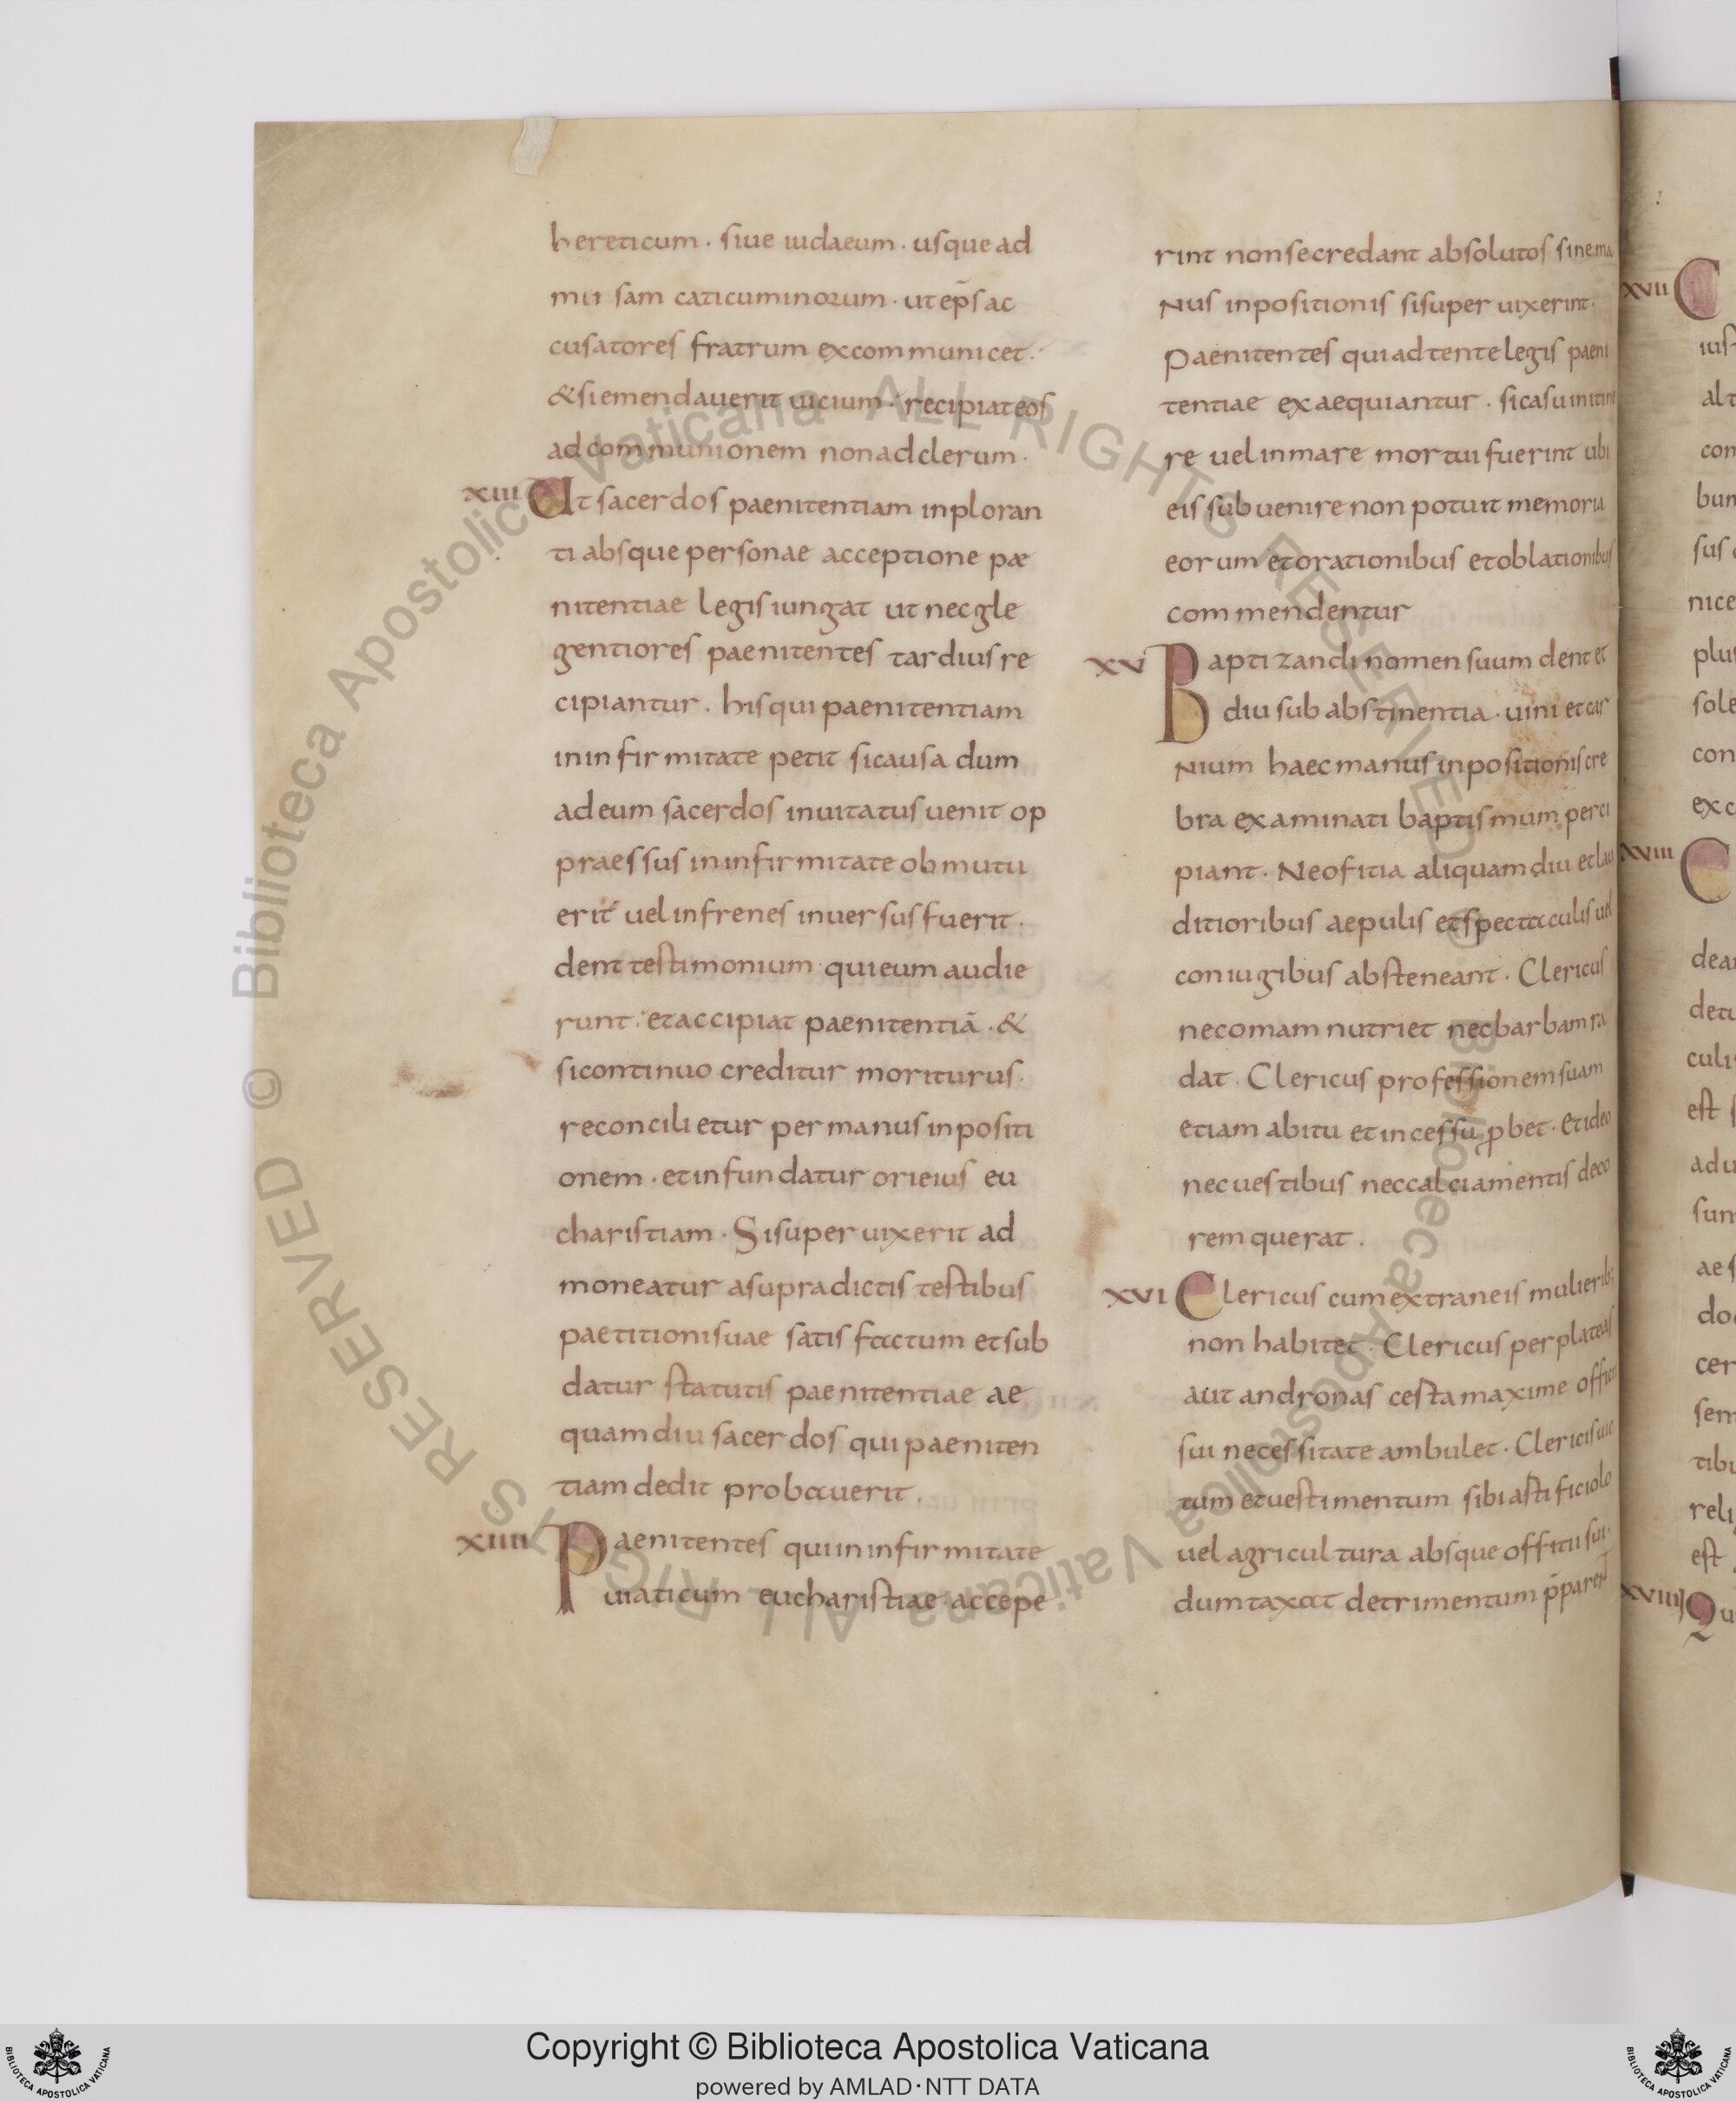 hereticum · siue iudaeum · usque ad
mii sam caticuminorum · ut ep̄s ac
cusatores fratrum excommunicet ·
& si emendauerit uicium · recipiat eos
ad communionem non ad clerum ·
XIII Ut sacerdos paenitentiam inploran
ti absque personae acceptione pæ
nitentiae legis iungat ut necgle
gentiores paenitentes tardius re
cipiantur . his qui paenitentiam
in infirmitate petit si causa dum
ad eum sacerdos inuitatus uenit op
praessus in infirmitate obmutu
erit uel infrenes inuersus fuerit .
dent testimonium qui eum audie
runt · et accipiat paenitentiā · &
si continuo creditur moriturus ·
reconcilietur per manus inpositi
onem · et infundatur ori eius eu
charistiam · Si superuixerit ad
moneatur a supradictis testibus
paetitioni suae satis factum et sub
datur statutis paenitentiae ae
quamdiu sacerdos qui paeniten
tiam dedit probauerit .
XIIII Paenitentes qui in infirmitate
uiaticum eucharistiae · accepe
rint non se credant absolutos sine ma
nus inpositionis si superuixerint ·
Paenitentes qui adtente legis paeni
tentiae exaequiantur . si casu in itine
re uel in mare mortui fuerint ubi
eis subuenire non potuit memoria
eorum et orationibus et oblationibus
commendentur
XV Baptizandi nomen suum dent et
diu sub abstinentia · uini et car
nium haec manus inpositionis cre
bra examinati baptismum perci
piant · Neofitia aliquamdiu et lau
ditioribus aepulis et spectaculis uel
coniugibus absteneant · Clericus
ne comam nutriet nec barbam ra
dat . Clericus professionem suam
etiam abitu et incessu ꝓbet · et ideo
nec uestibus nec calciamentis deco
rem querat .
XVI Clericus cum extraneis mulierib;
non habitet · Clericus per plateas
aut andronas cesta maxime officii
sui necessitate ambulet · Clerici suic
tum et uestimentum sibi astificiolo
uel agricultura absque offitii sui ·
dumtaxat detrimentum p̄paret
XVII C
XVIII C
XVIIII Qu
Copyright © Biblioteca Apostolica Vaticana
powered by AMLAD·NTT DATA